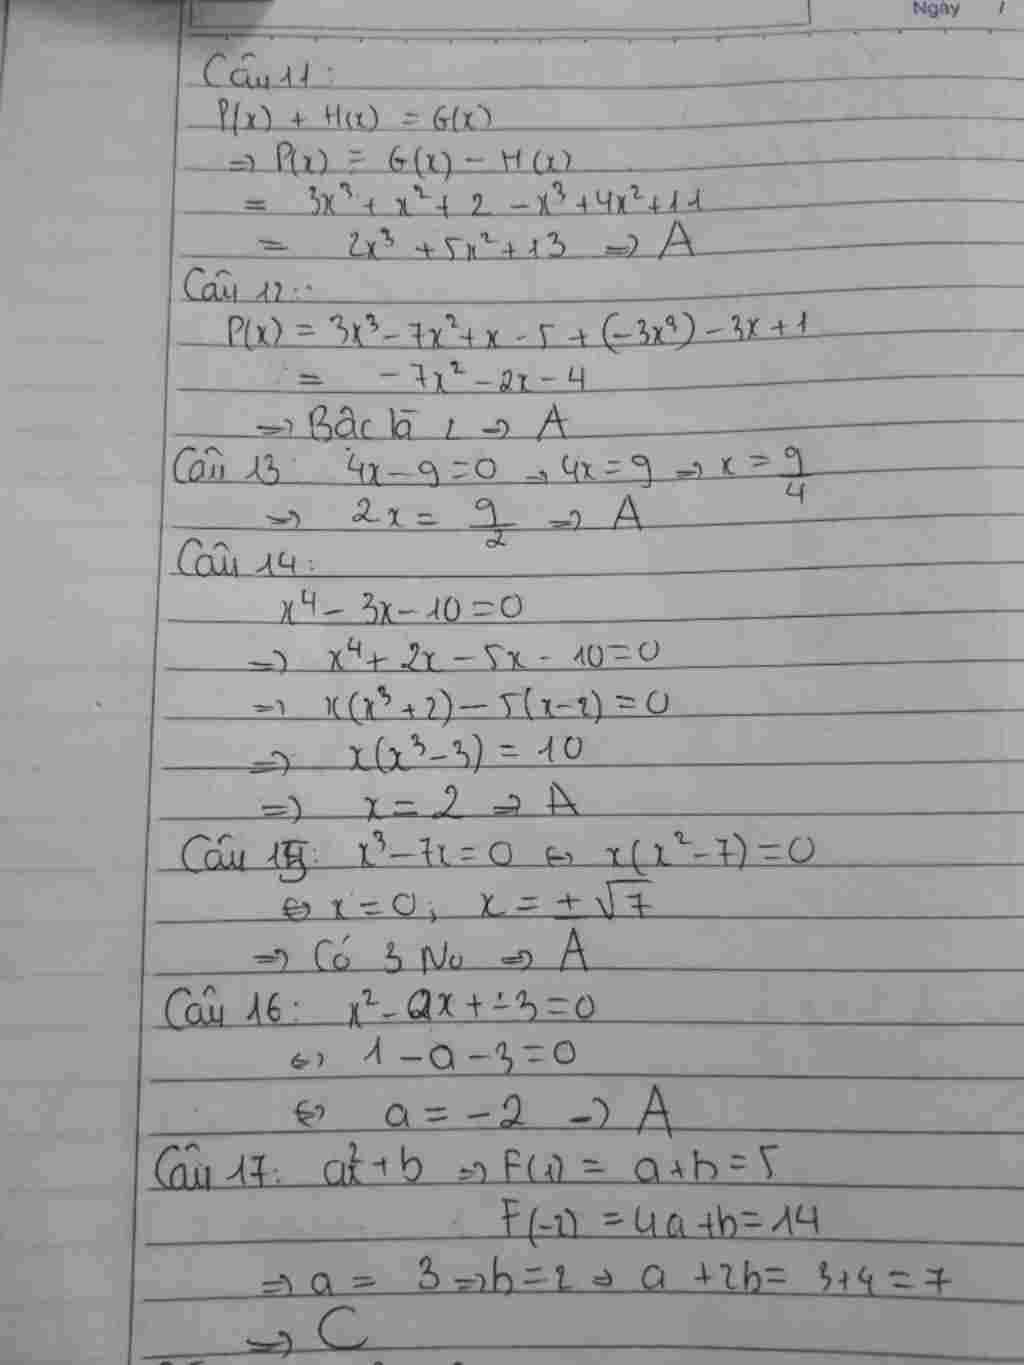 Ngày /
Câu 11:
P(x) + H(x) = G(x)
⇒ P(x) = G(x) - H(x)
= 3x³ + x² + 2 - x³ + 4x² + 11
= 2x³ + 5x² + 13 ⇒ A
Câu 12:
P(x) = 3x³ - 7x² + x - 5 + (-3x³) - 3x + 1
= -7x² - 2x - 4
⇒ Bậc là 2 ⇒ A
Câu 13: 4x - 9 = 0 → 4x = 9 ⇒ x = 9/4
⇒ 2x = 9/2 ⇒ A
Câu 14:
x⁴ - 3x - 10 = 0
⇒ x⁴ + 2x - 5x - 10 = 0
⇒ x(x³ + 2) - 5(x - 2) = 0
⇒ x(x³ - 3) = 10
⇒ x = 2 ⇒ A
Câu 15: x³ - 7x = 0 ⇔ x(x² - 7) = 0
⇔ x = 0; x = ±√7
⇒ Có 3 No ⇒ A
Câu 16: x² - ax + -3 = 0
⇔ 1 - a - 3 = 0
⇔ a = -2 → A
Câu 17: ax² + b ⇒ F(1) = a + b = 5
F(-2) = 4a + b = 14
⇒ a = 3 ⇒ b = 2 ⇒ a + 2b = 3 + 4 = 7
⇒ C